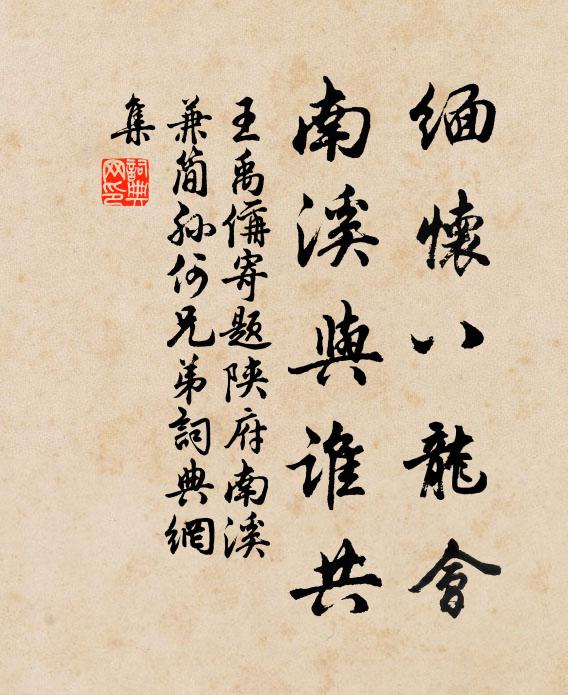 緬懷八龍會
南溪與誰共
王禹偁寄題陝府南溪
兼簡孙何兄弟詞典網
集
詞典
网印